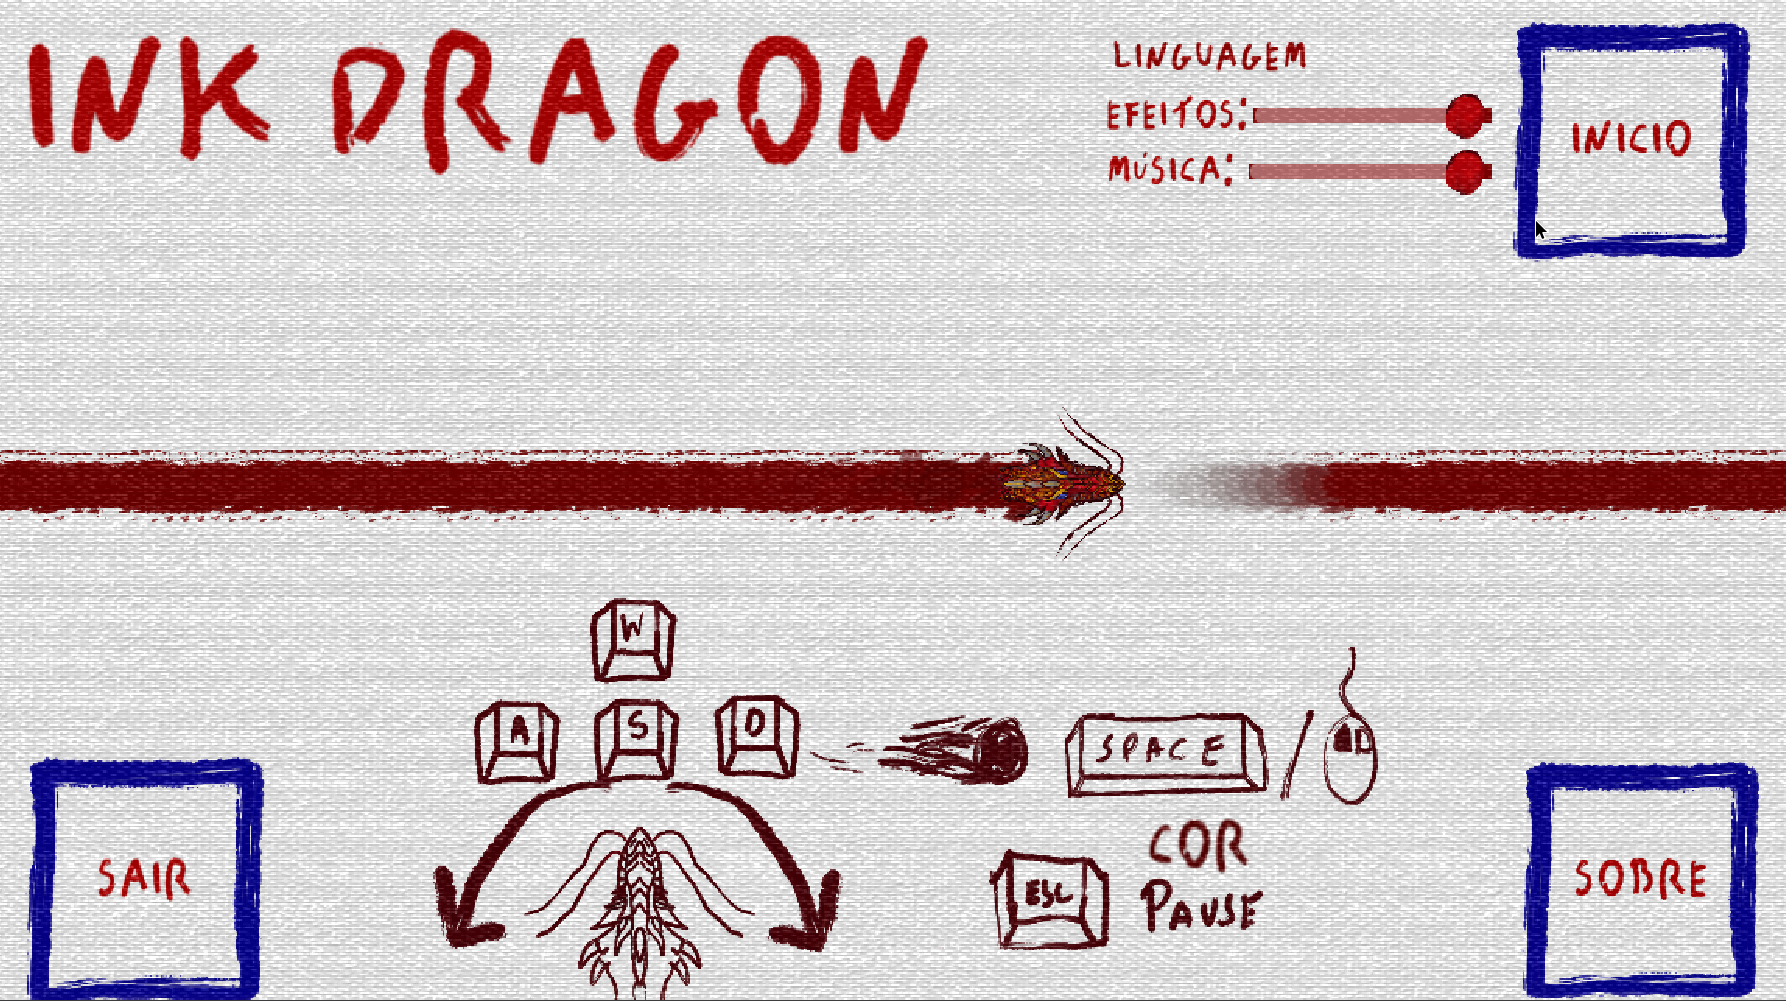 INK DRAGON
LINGUAGEM
EFEITOS:
MÚSICA:
INICIO
W
A S D
SPACE
ESC
COR
PAUSE
SAIR
SOBRE